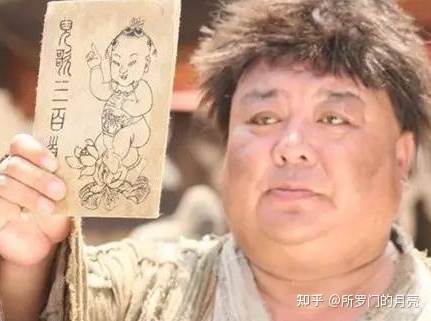 兒歌三百首
知乎 @所罗门的月亮